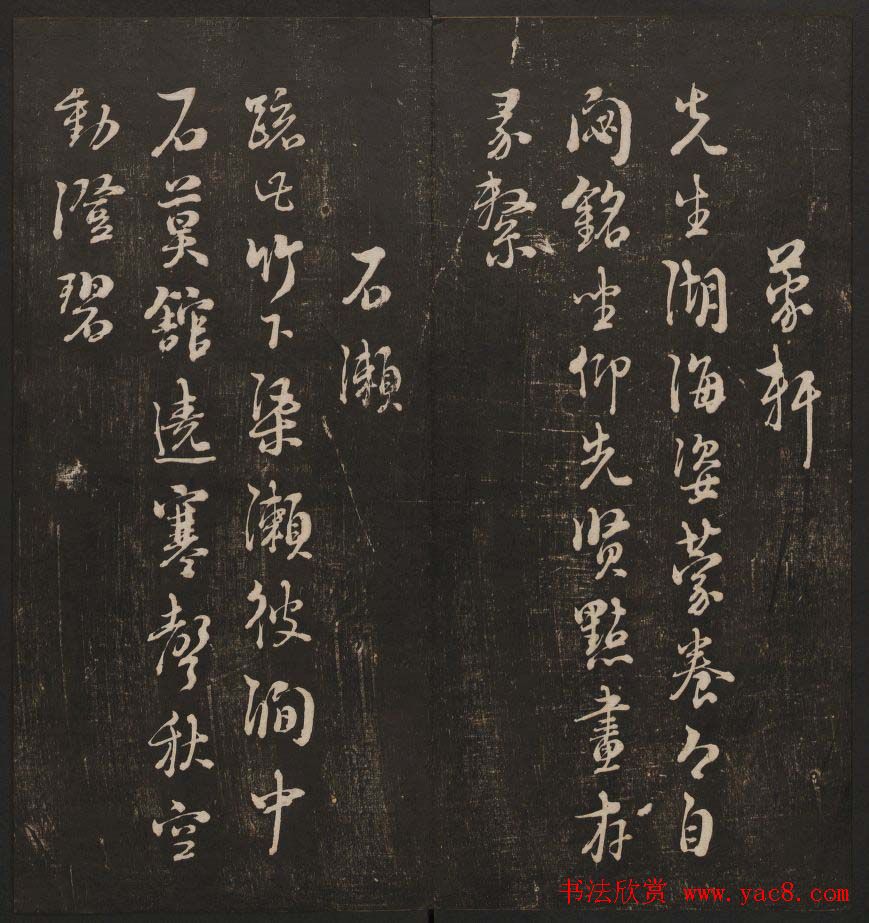 蒙軒
先生湖海姿蒙養今自
閟銘坐仰先賢點畫存
彖繫
石瀨
疏此竹下渠瀨彼澗中
石莫館遶寒聲秋空
動澄碧
书法欣赏 www.yac8.com